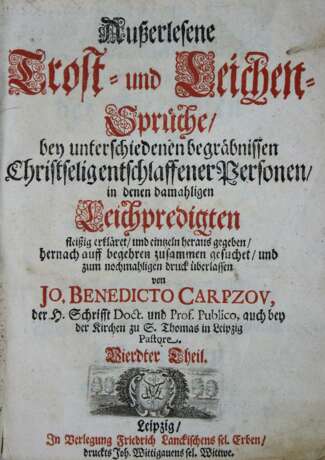 Außerlesene
Trost- und Leichen-
Sprüche/
bey unterschiedenen begräbnissen
Christseligentschlaffener Personen/
in denen damahligen
Leichpredigten
fleißig erkläret/ und eintzeln heraus gegeben/
hernach auff begehren zusammen gesuchet/ und
zum nochmahligen druck überlassen
von
JO. BENEDICTO CARPZOV,
der H. Schrifft Doct. und Prof. Publico, auch bey
der Kirchen zu S. Thomas in Leipzig
Pastore.
Vierdter Theil.
Leipzig/
In Verlegung Friedrich Lanckischens sel. Erben/
druckts Joh. Wittigauens sel. Wittwe.